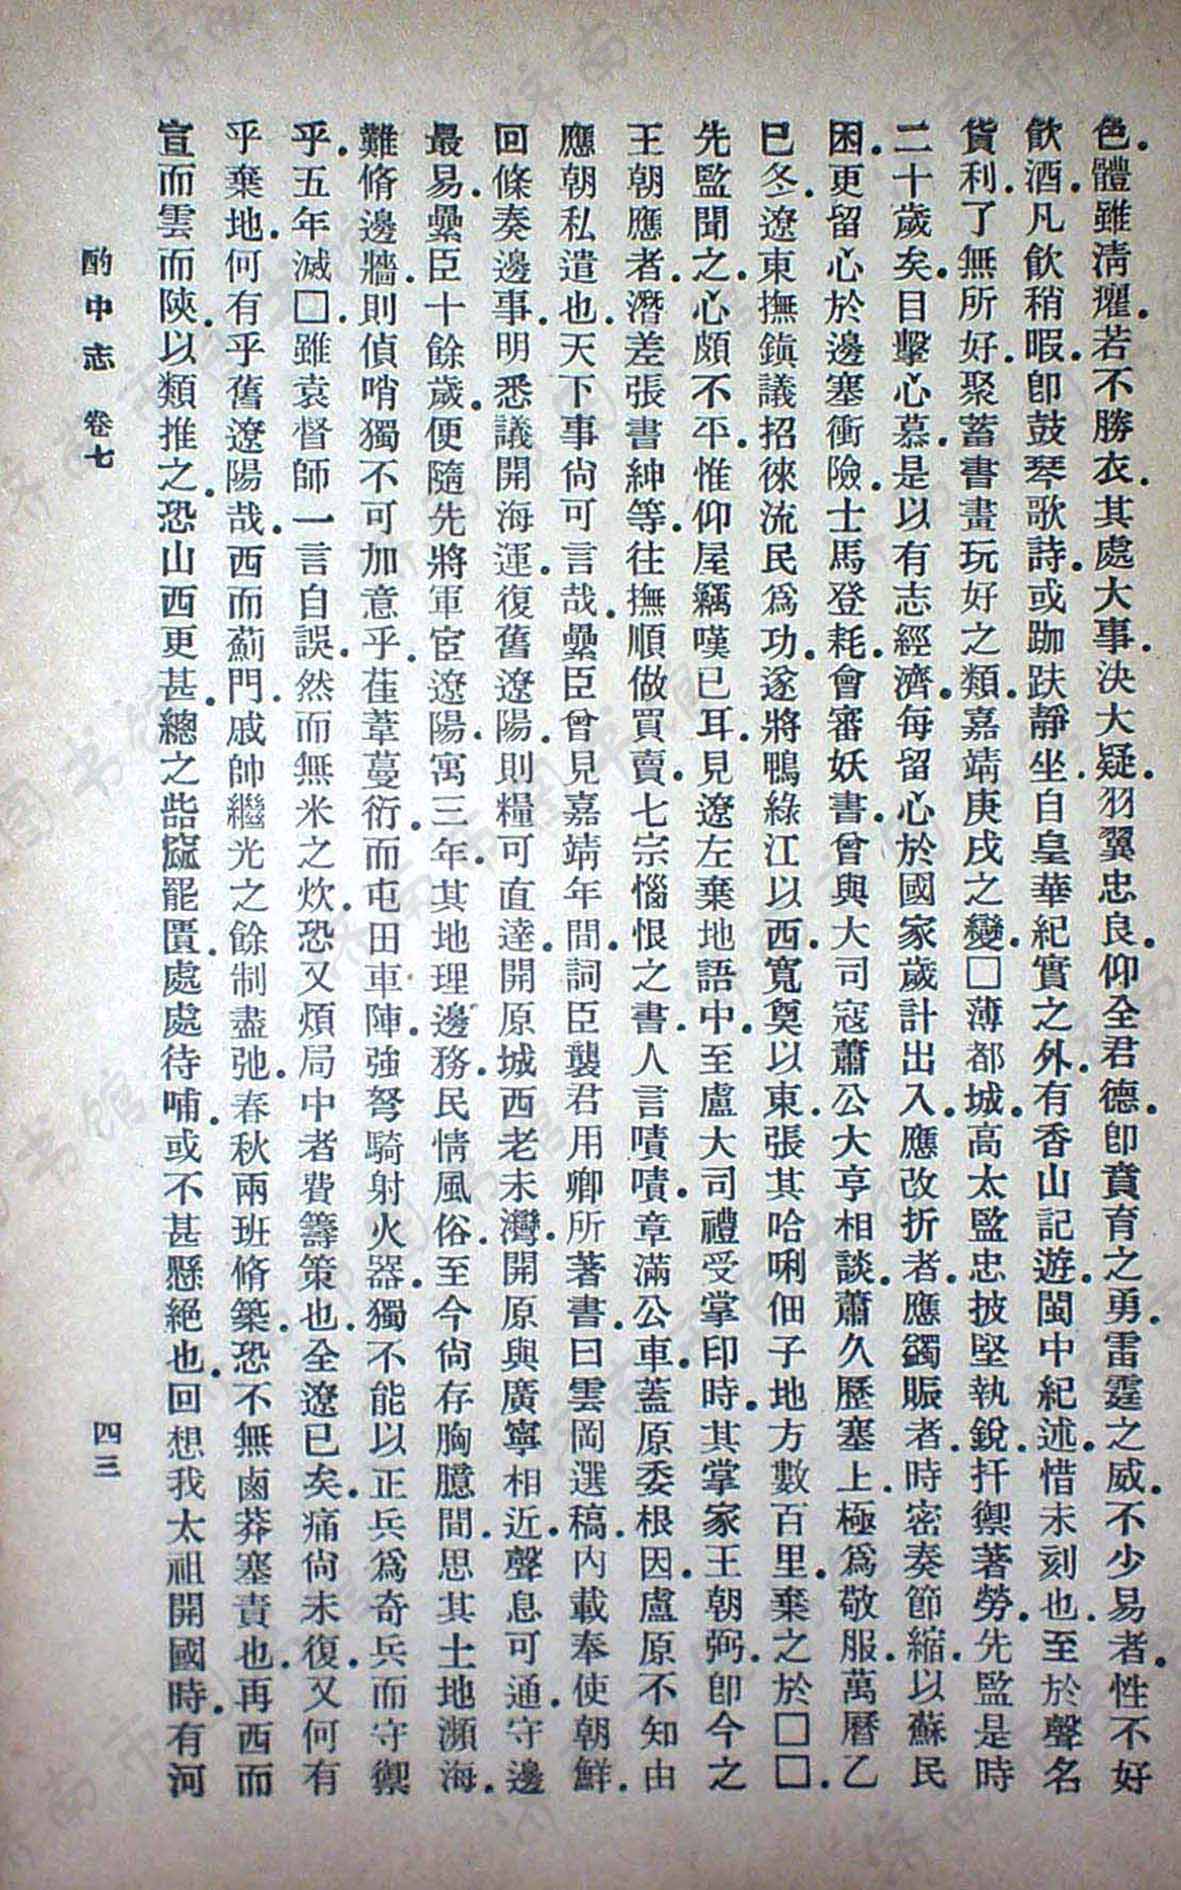 色。體雖淸癯。若不勝衣。其處大事。決大疑。羽翼忠良。仰全君德。卽賁育之勇。雷霆之威。不少易者。性不好
飮酒。凡飮稍暇。卽鼓琴歌詩。或跏趺靜坐。自皇華紀實之外。有香山記遊。閩中紀述。惜未刻也。至於聲名
貨利。了無所好。聚蓄書畫玩好之類。嘉靖庚戌之變。□薄都城。高太監忠披堅執銳。扞禦著勞。先監是時
二十歲矣。目擊心慕。是以有志經濟。每留心於國家歲計出入。應改折者。應蠲賑者。時密奏節縮。以蘇民
困。更留心於邊塞衝險。士馬登耗。會審妖書。曾與大司寇蕭公大亨相談。蕭久歷塞上。極爲敬服。萬曆乙
巳冬。遼東撫鎭議招徠流民爲功。遂將鴨綠江以西。寬奠以東。張其哈唎佃子地方數百里。棄之於□□。
先監聞之。心頗不平。惟仰屋竊嘆已耳。見遼左棄地語中。至盧大司禮受掌印時。其掌家王朝弼。卽今之
王朝應者。潛差張書紳等。往撫順做買賣。七宗惱恨之書。人言嘖嘖。章滿公車。蓋原委根因。盧原不知由
應朝私遣也。天下事尙可言哉。纍臣曾見嘉靖年間。詞臣龔君用卿所著書。曰雲岡選稿。內載奉使朝鮮。
回條奏邊事。明悉議開海運。復舊遼陽。則糧可直達。開原城西老未灣。開原與廣寧相近。聲息可通。守邊
最易。纍臣十餘歲。便隨先將軍宦遼陽。寓三年。其地理邊務。民情風俗。至今尙存胸臆間。思其土地瀕海。
難脩邊牆。則偵哨獨不可加意乎。萑葦蔓衍。而屯田車陣。強弩騎射火器。獨不能以正兵爲奇兵而守禦
乎。五年滅□。雖袁督師一言自誤。然而無米之炊。恐又煩局中者費籌策也。全遼已矣。痛尙未復。又何有
乎棄地。何有乎舊遼陽哉。西而薊門。戚帥繼光之餘制盡弛。春秋兩班脩築。恐不無鹵莽塞責也。再西而
宣而雲而陝。以類推之。恐山西更甚。總之呰窳罷匱。處處待哺。或不甚懸絕也。回想我太祖開國時。有河
酌中志 卷七 四三